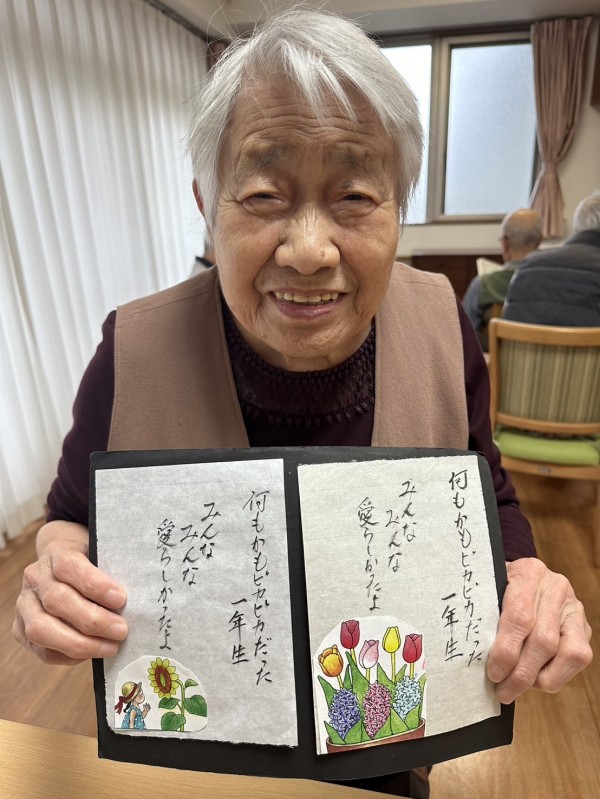 何もかもピカピカだった
一年生
みんな
みんな
愛らしかったよ
何もかもピカピカだった
一年生
みんな
みんな
愛らしかったよ